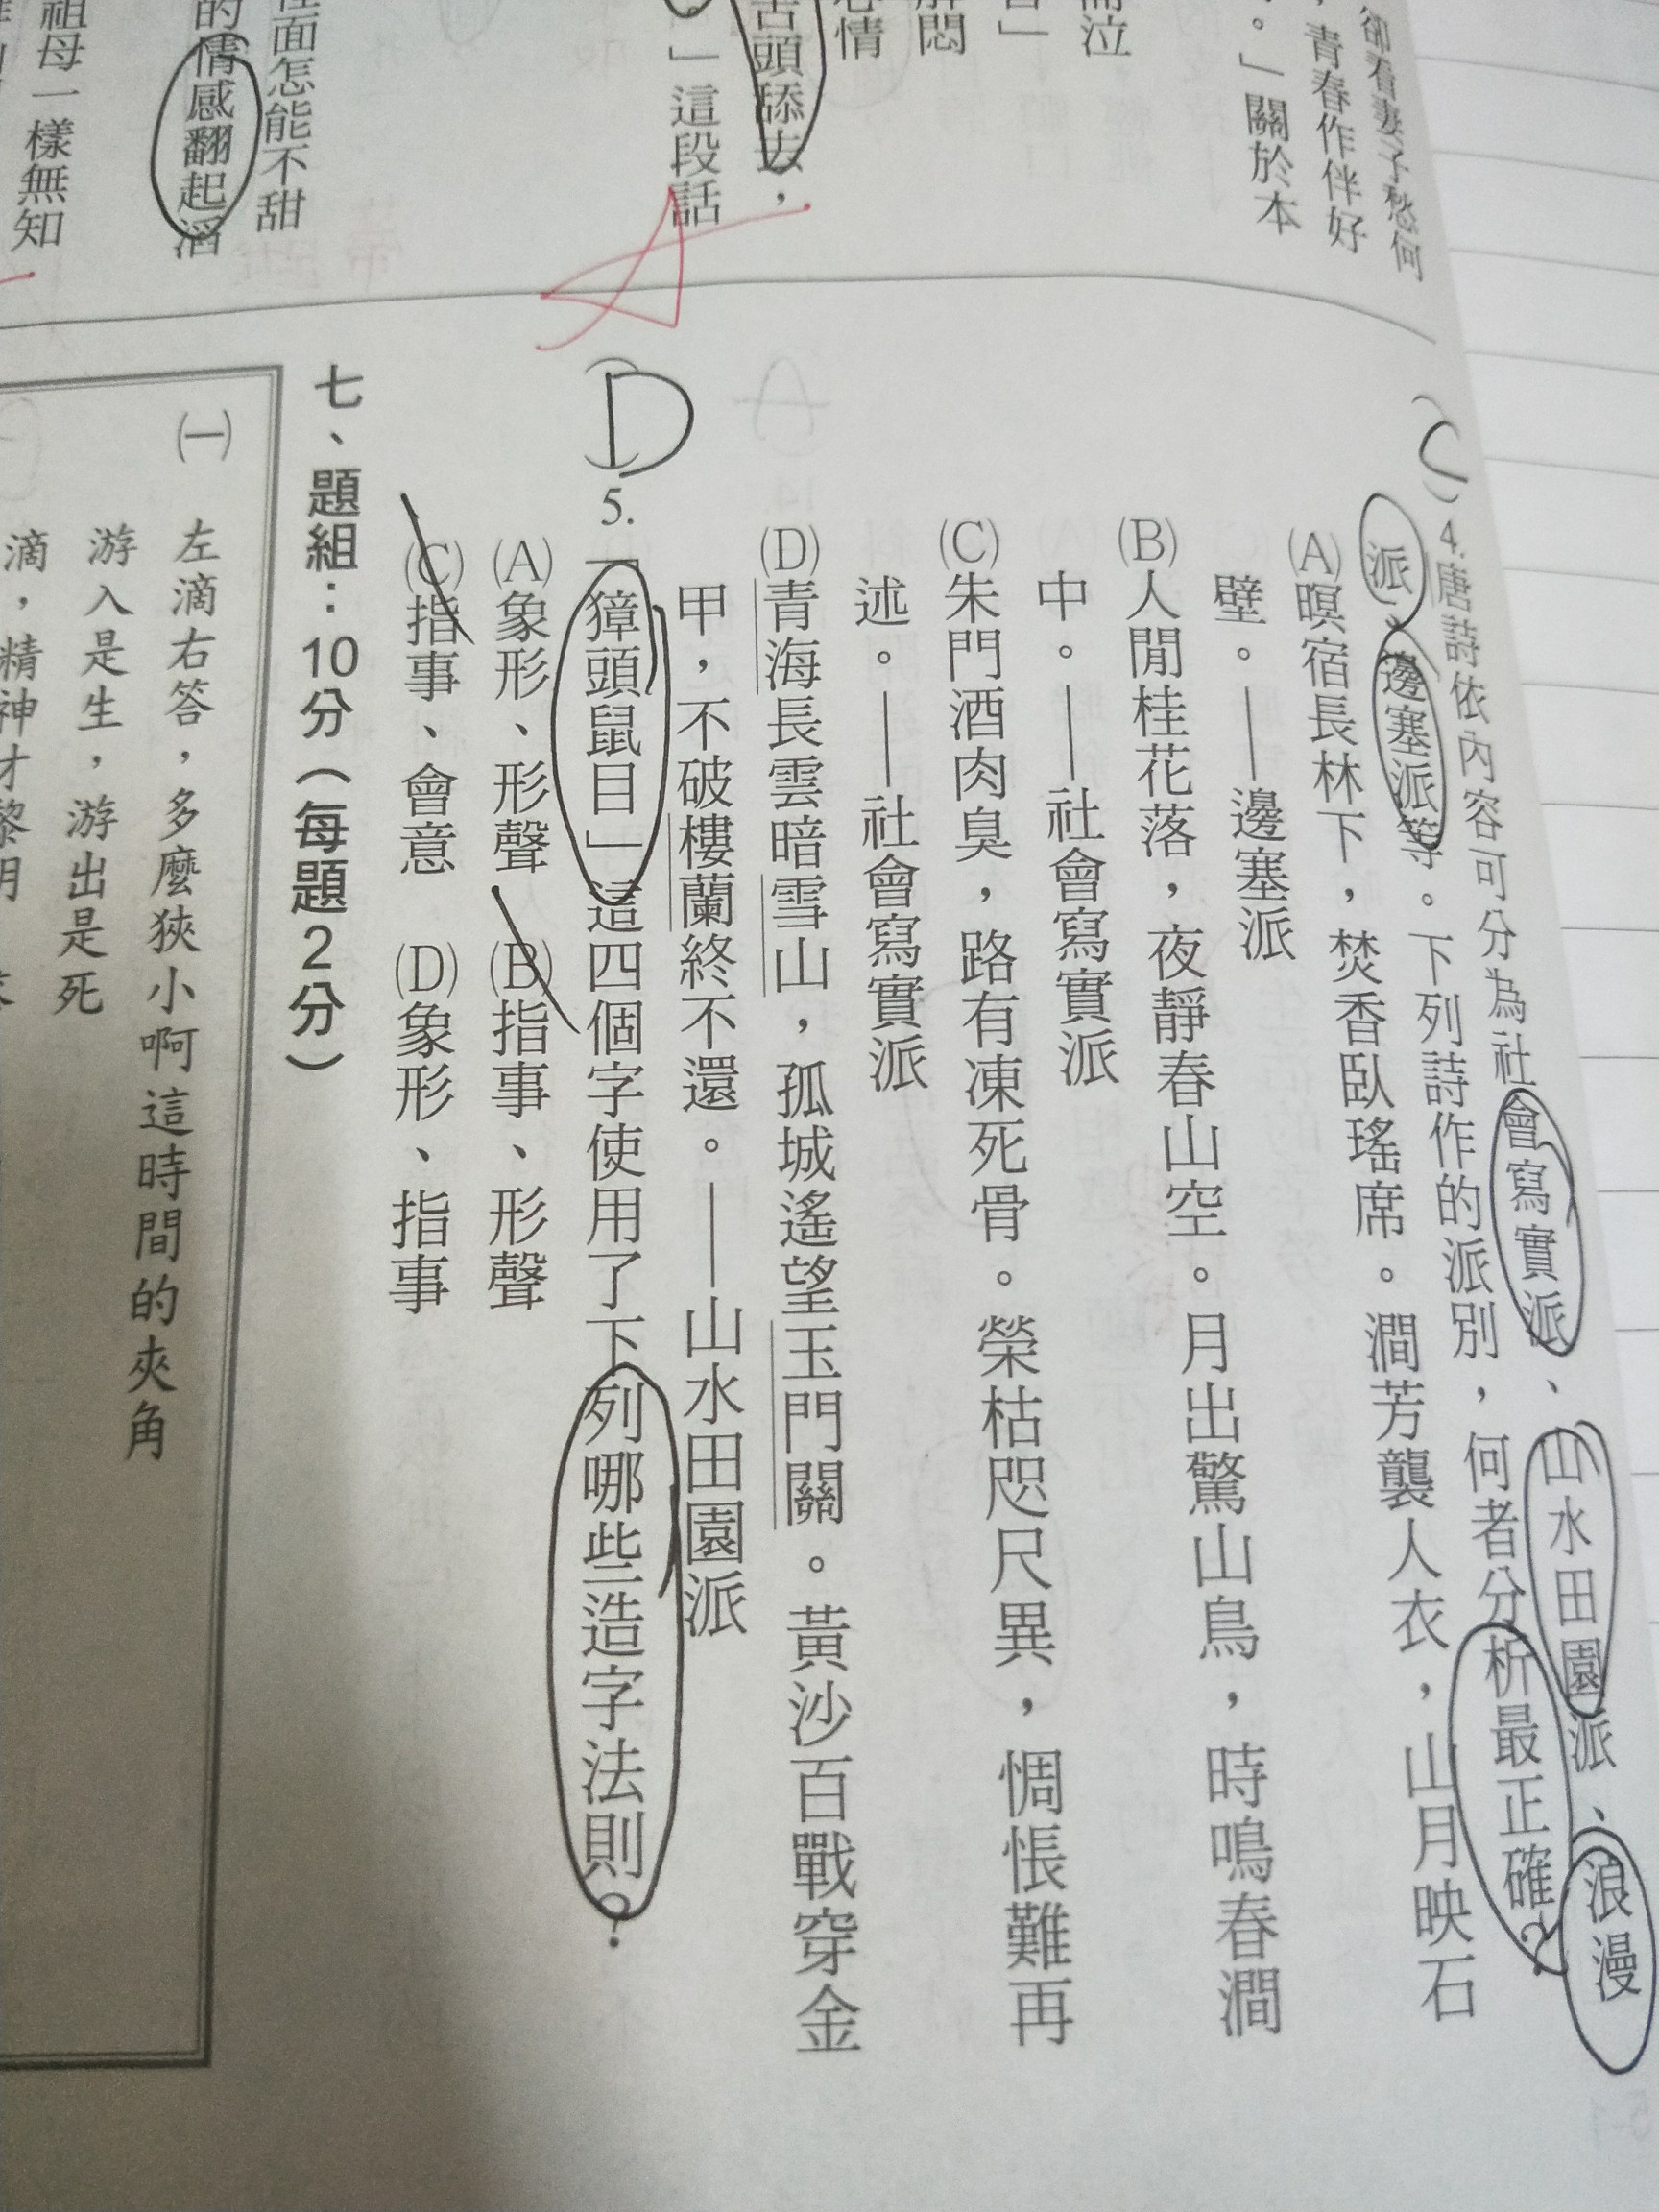 卻看妻子愁何
，青春作伴好
。」關於本
而泣
」
解悶
心情
舌頭舔去，
。」這段話
面怎能不甜
的情感翻起滔
祖母一樣無知
C
4.唐詩依內容可分為社會寫實派、山水田園派、浪漫
派、邊塞派等。下列詩作的派別，何者分析最正確？
(A)暝宿長林下，焚香臥瑤席。澗芳襲人衣，山月映石
壁。——邊塞派
(B)人閒桂花落，夜靜春山空。月出驚山鳥，時鳴春澗
中。——社會寫實派
(C)朱門酒肉臭，路有凍死骨。榮枯咫尺異，惆悵難再
述。——社會寫實派
(D)青海長雲暗雪山，孤城遙望玉門關。黃沙百戰穿金
甲，不破樓蘭終不還。——山水田園派
D
A
5.「獐頭鼠目」這四個字使用了下列哪些造字法則？
(A)象形、形聲 (B)指事、形聲
(C)指事、會意 (D)象形、指事
七、題組：10分（每題2分）
(一)
左滴右答，多麼狹小啊這時間的夾角
游入是生，游出是死
滴，精神才黎明